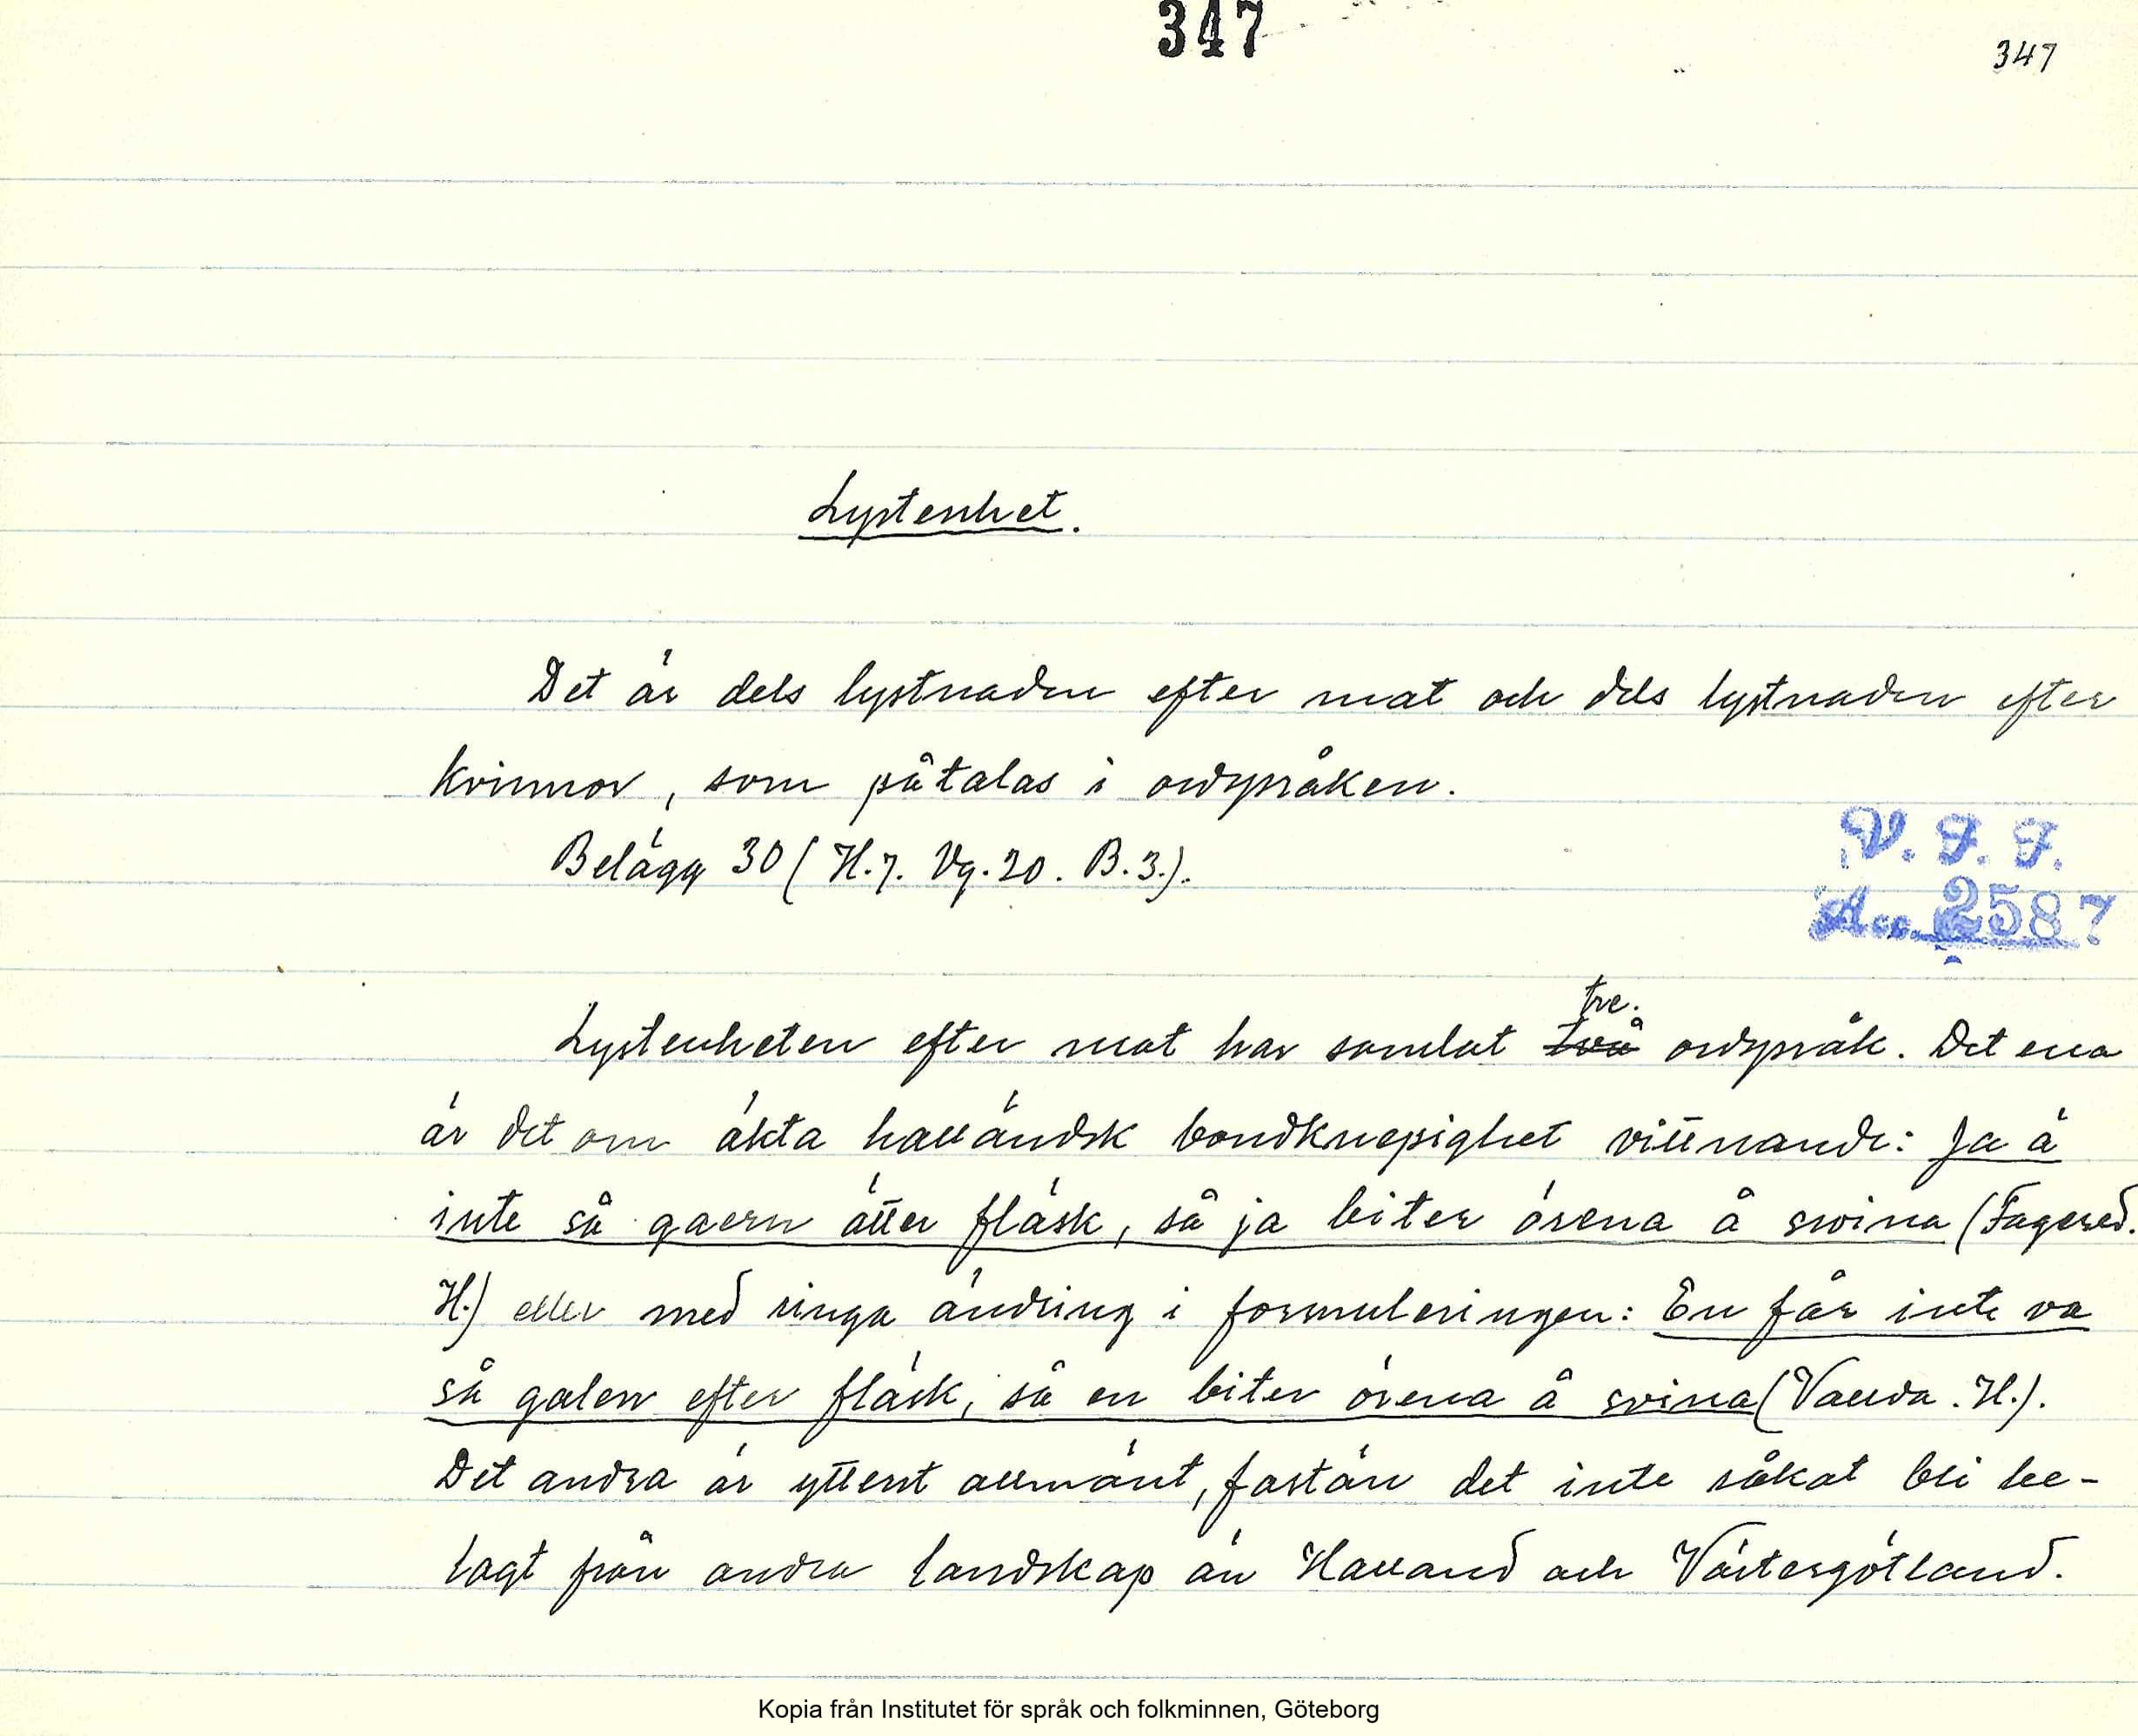 347
347
Lystenhet.
Det är dels lystnaden efter mat och dels lystnaden efter
kvinnor, som påtalas i ordspråken.
Belägg 30 (H.7. Vg.20. B.3.).
V. F. F.
Acc. 2587
tre.
Lystenheten efter mat har samlat två ordspråk. Det ena
är det om äkta halländsk bondknepighet vittnande: Ja ä
inte så gaern ätter fläsk, så ja biter örena å svina (Fagered.
H.) eller med ringa ändring i formuleringen: En får inte va
så galen efter fläsk, så en biter örena å svina (Vallda. H.).
Det andra är ytterst allmänt, fastän det inte råkat bli be-
lagt från andra landskap än Halland och Västergötland.
Kopia från Institutet för språk och folkminnen, Göteborg